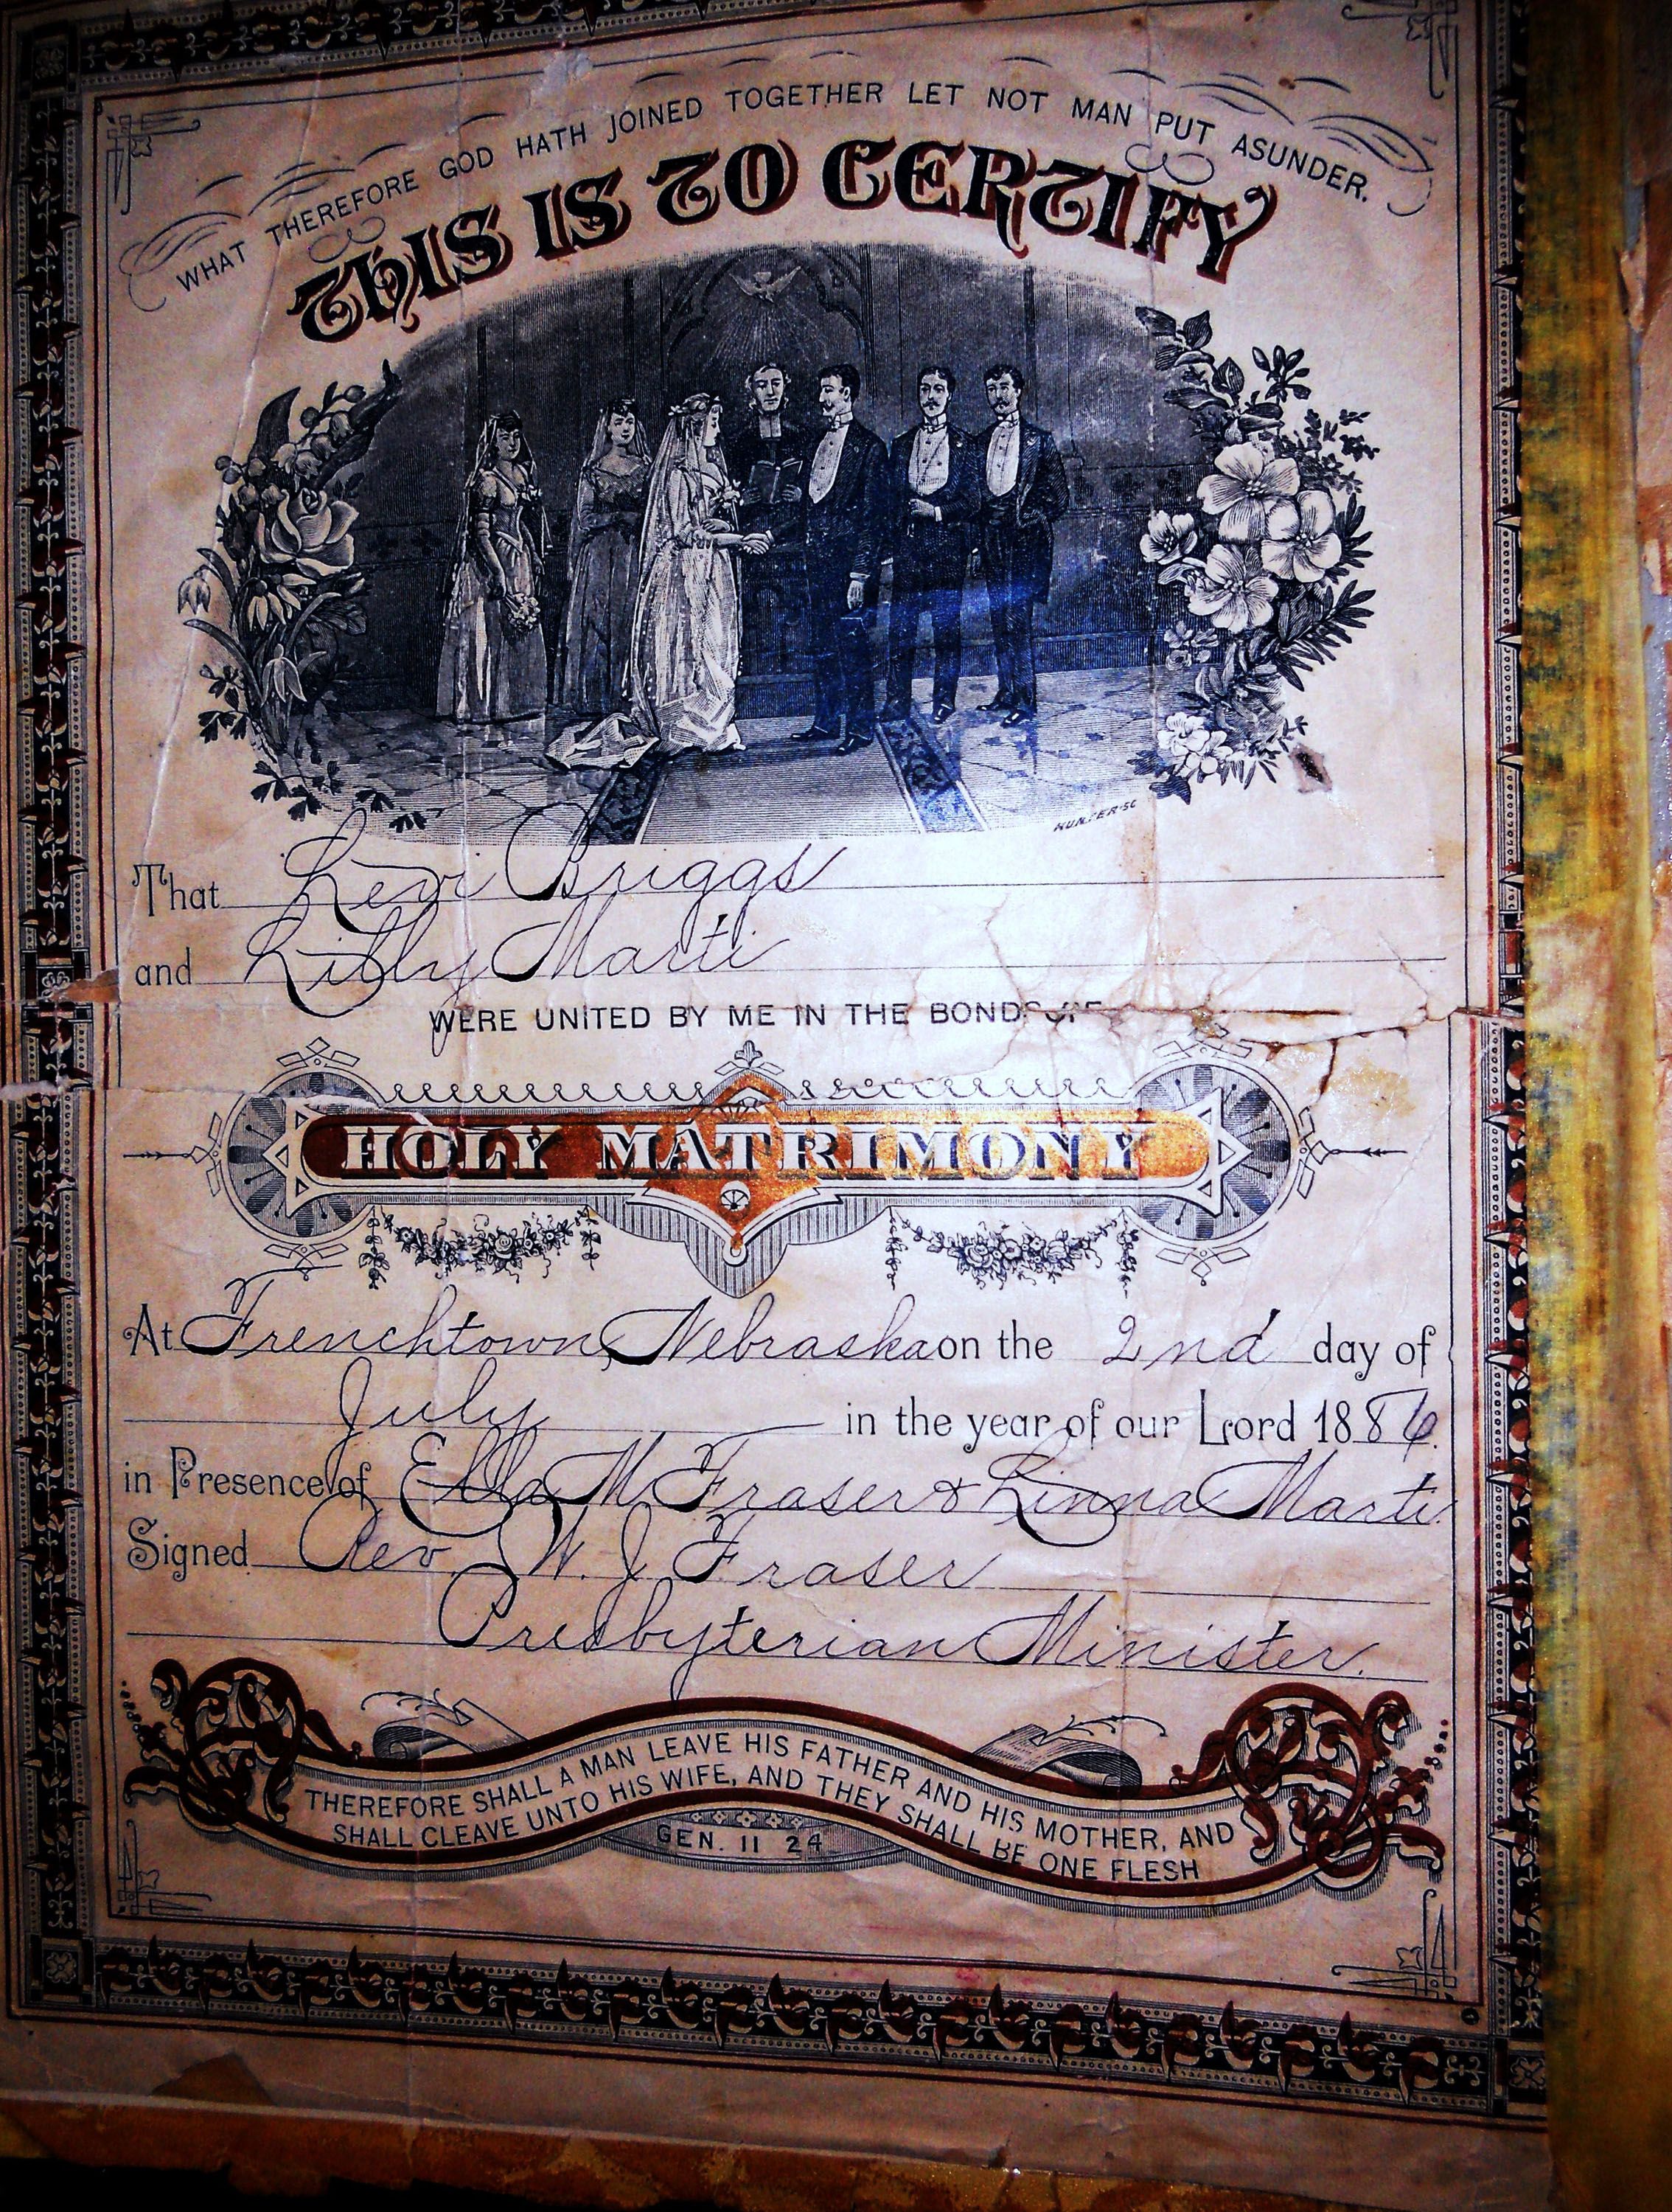 WHAT THEREFORE GOD HATH JOINED TOGETHER LET NOT MAN PUT ASUNDER.
THIS IS TO CERTIFY
HUNTER-SC
That Levi Briggs
and Lilly Marti
WERE UNITED BY ME IN THE BONDS OF
HOLY MATRIMONY
At Frenchtown, Nebraska on the 2nd day of
July in the year of our Lord 1886.
in Presence of Ella M Fraser & Linna Marti.
Signed Rev W. J Fraser
Presbyterian Minister.
THEREFORE SHALL A MAN LEAVE HIS FATHER AND HIS MOTHER, AND
SHALL CLEAVE UNTO HIS WIFE, AND THEY SHALL BE ONE FLESH
GEN. II 24